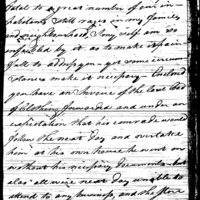 fatal to a great number of our in-
habitants & still rages in my family
and neighborhood I myself am so
enfeebled by it as to make it pain-
full to address you - yet some circum
stances make it necessary - Enclosed
you have an Invoice of the last
of clothing forwarded and under an
expectation that his comrade would
follow the next day and overtake
him at his own house he went on
without his necessary documents but
also at were next day unable to
attend to any business, and the